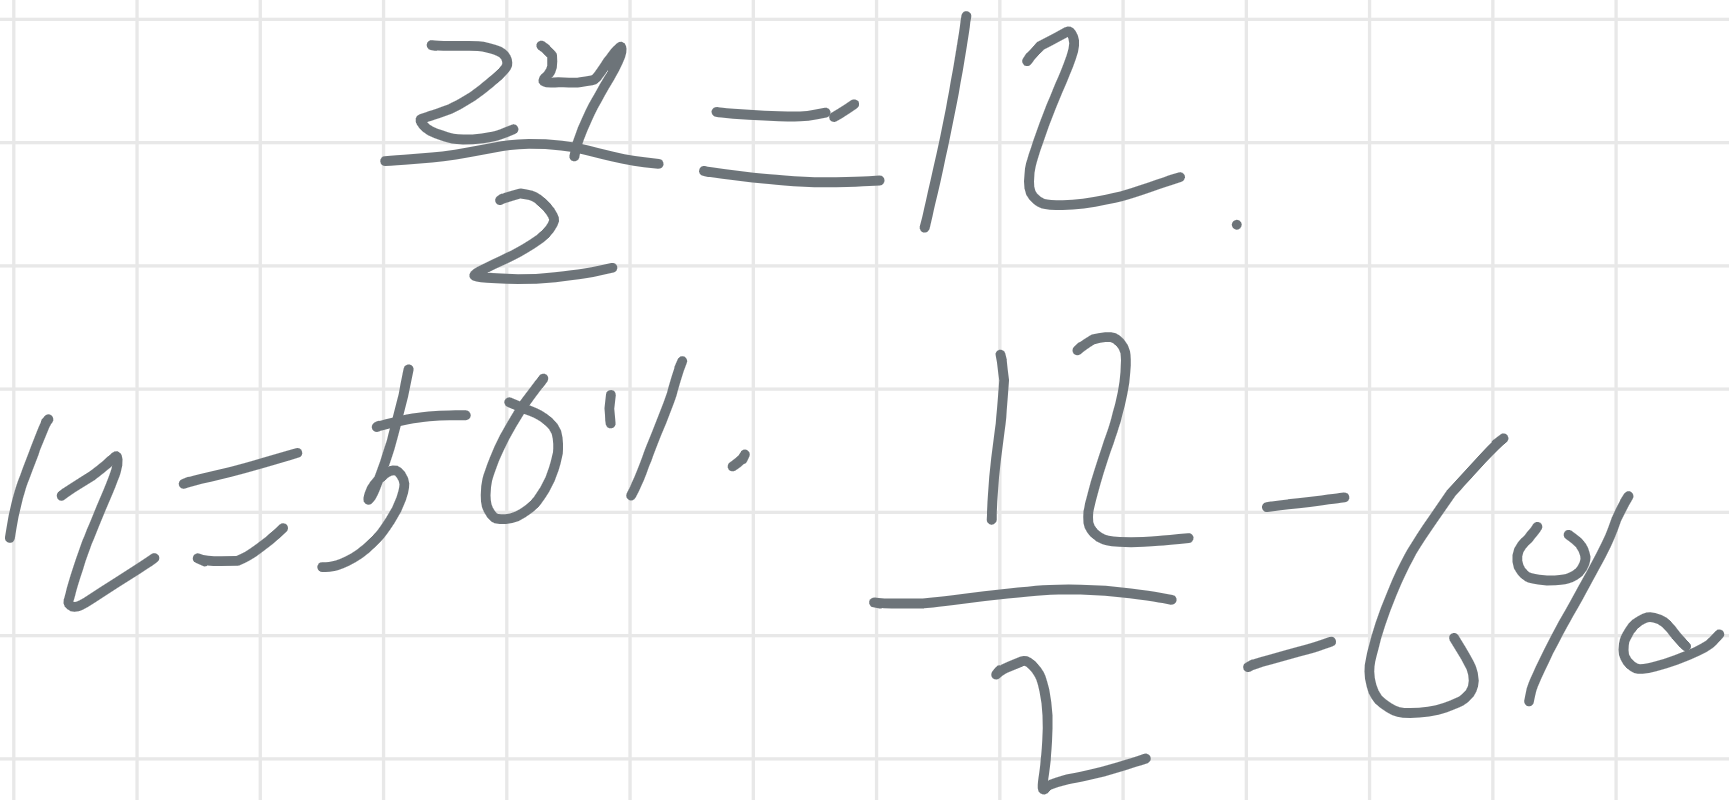 24/2 = 12.
12 = 50%. 12/2 = 6%